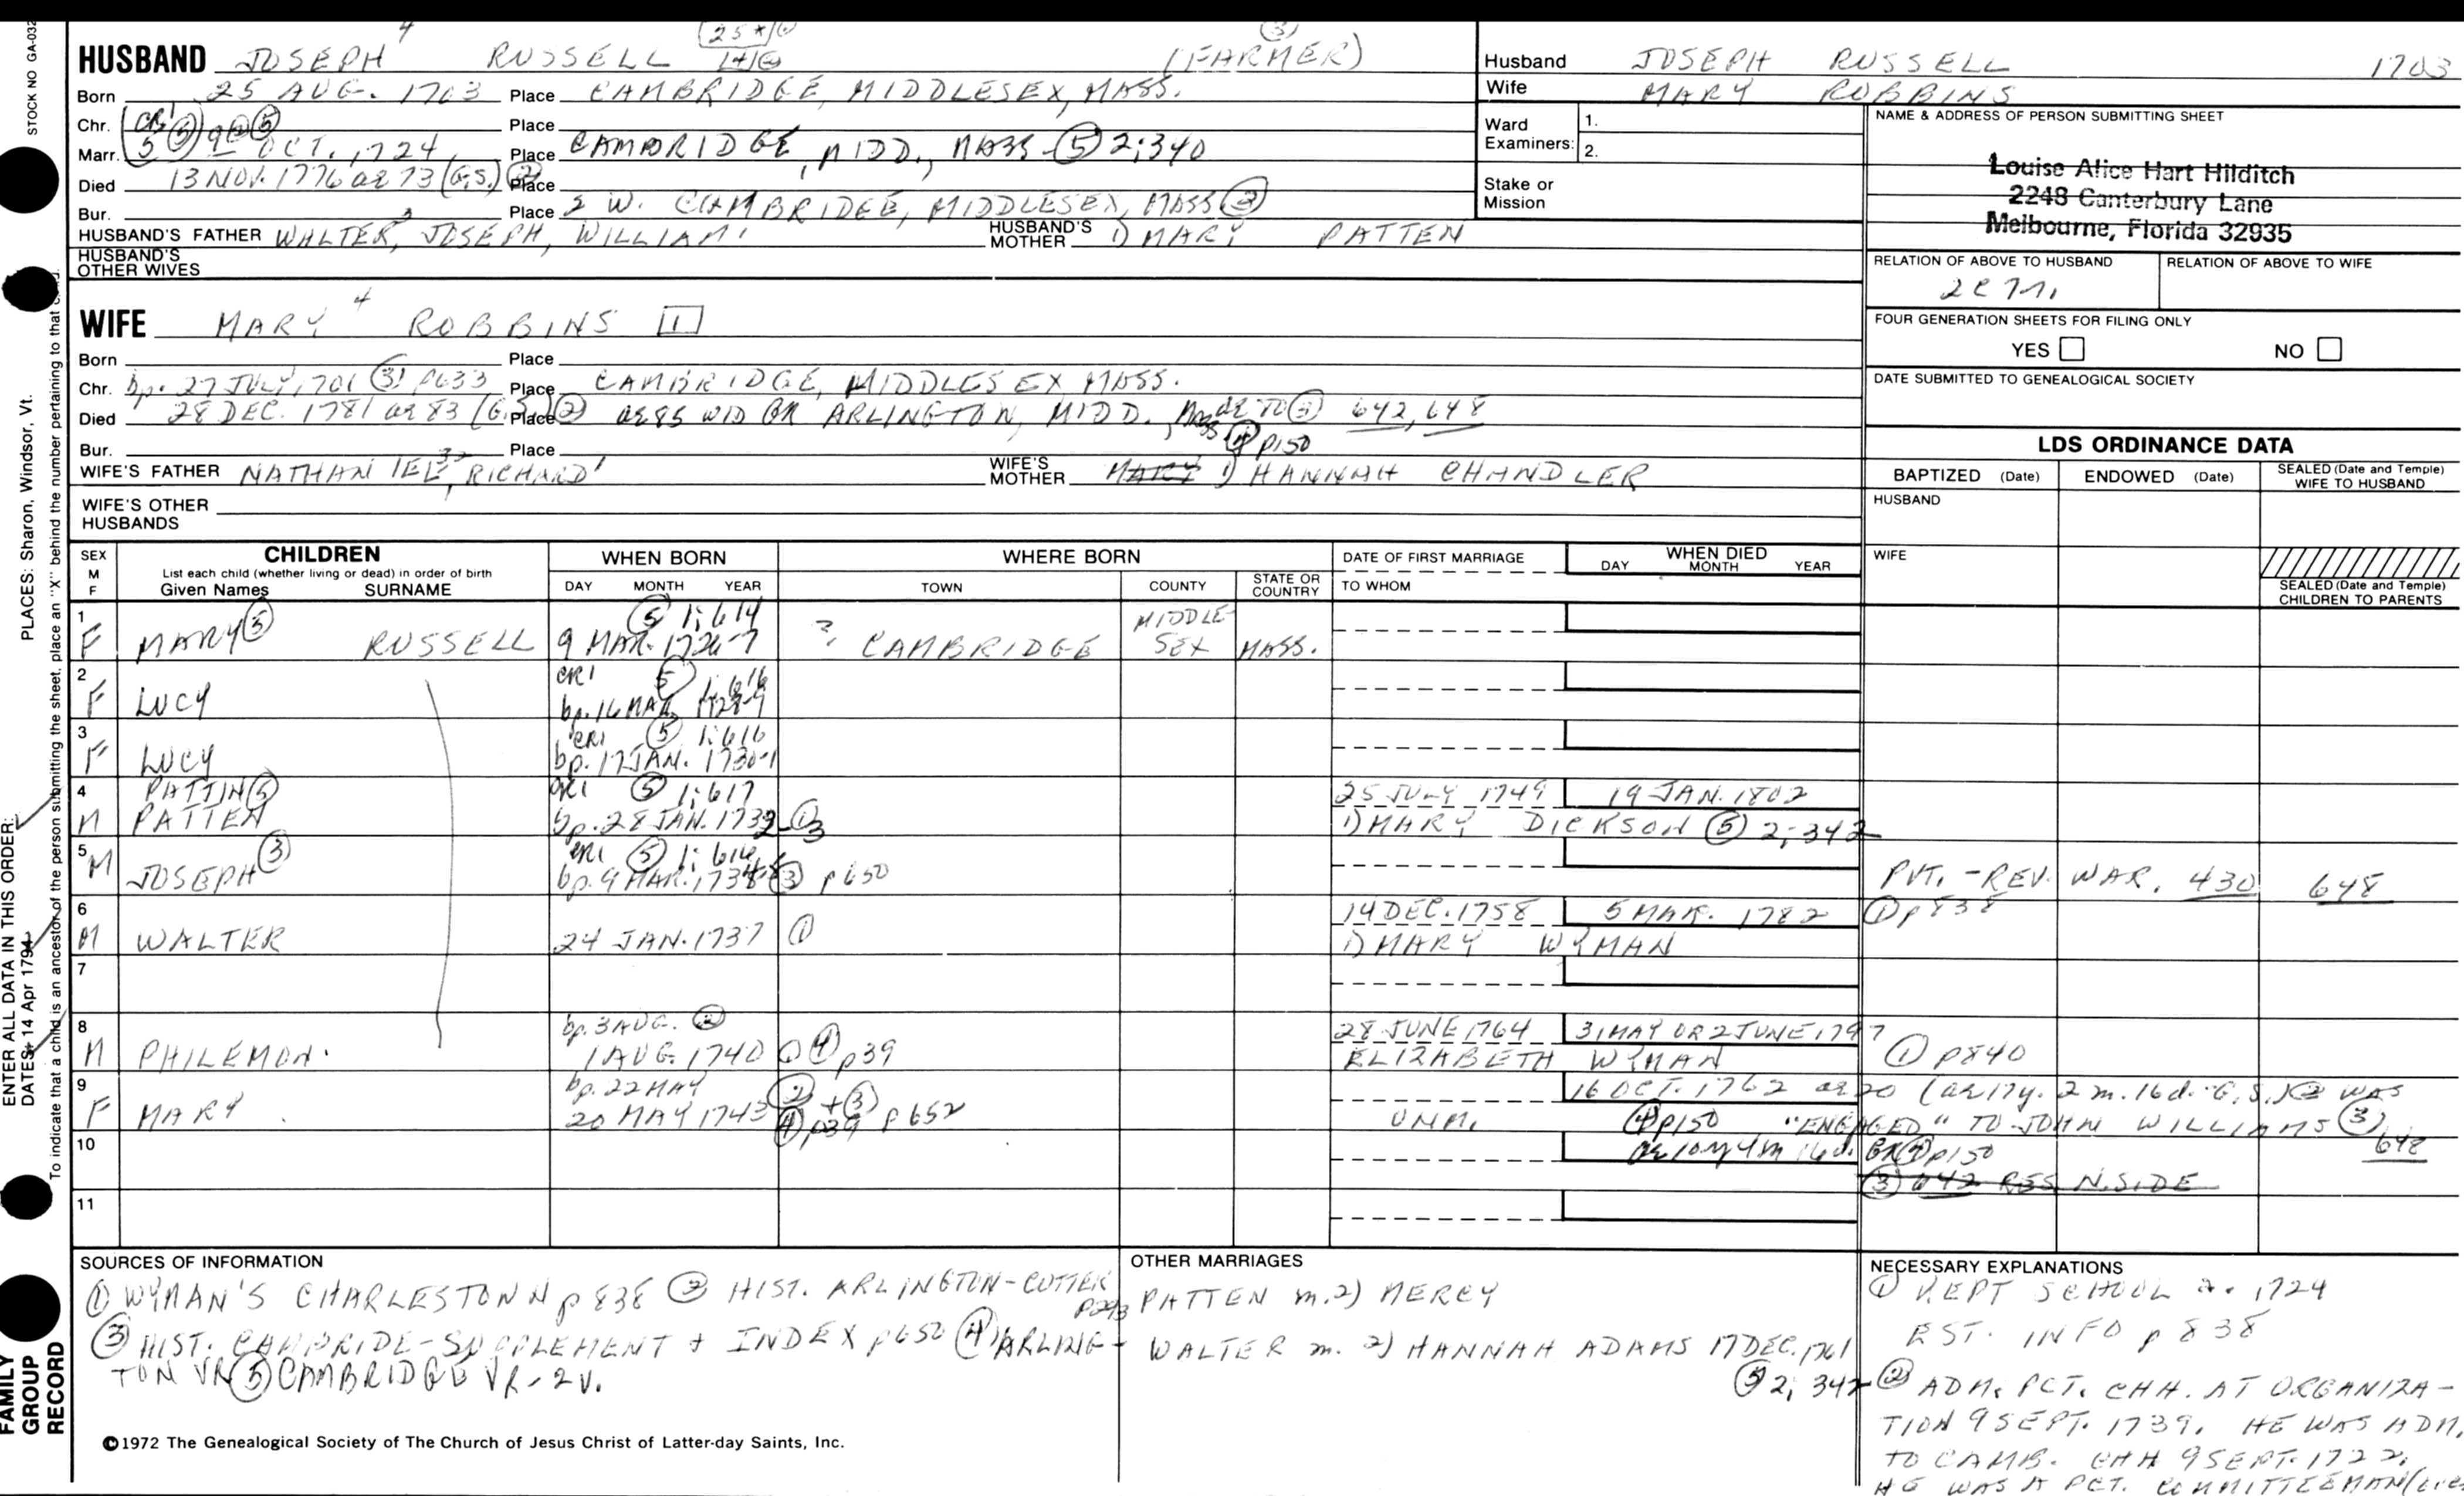 STOCK NO GA-032
HUSBAND JOSEPH 4 RUSSELL (FARMER) 3
Born 25 AUG. 1703 Place CAMBRIDGE, MIDDLESEX, MASS.
Chr. Place
Marr. OCT. 1724 Place CAMBRIDGE, MIDD., MASS 5 2;340
Died 13 NOV. 1776 ae 73 (G.S.) Place
Bur. Place 2 W. CAMBRIDGE, MIDDLESEX, MASS 3
HUSBAND'S FATHER WALTER, 3 JOSEPH, WILLIAM 1 HUSBAND'S MOTHER 1) MARY PATTEN
HUSBAND'S OTHER WIVES
Husband JOSEPH RUSSELL 1703
Wife MARY ROBBINS
Ward Examiners: 1. 2.
Stake or Mission
NAME & ADDRESS OF PERSON SUBMITTING SHEET
Louise Alice Hart Hilditch
2248 Canterbury Lane
Melbourne, Florida 32935
RELATION OF ABOVE TO HUSBAND RELATION OF ABOVE TO WIFE
FOUR GENERATION SHEETS FOR FILING ONLY
YES NO
DATE SUBMITTED TO GENEALOGICAL SOCIETY
WIFE MARY 4 ROBBINS 1
Born Place
Chr. bp. 27 JULY, 1701 3 p633 Place CAMBRIDGE, MIDDLESEX MASS.
Died 28 DEC. 1781 ae 83 (G.S.) Place 2 ae 85 WID GR ARLINGTON, MIDD., Mass 3 642, 648
4 p150
Bur. Place
WIFE'S FATHER NATHANIEL, RICHARD 1 WIFE'S MOTHER MARY 1) HANNAH CHANDLER
WIFE'S OTHER HUSBANDS
LDS ORDINANCE DATA
BAPTIZED (Date) ENDOWED (Date) SEALED (Date and Temple) WIFE TO HUSBAND
HUSBAND
WIFE
SEALED (Date and Temple) CHILDREN TO PARENTS
SEX M F CHILDREN WHEN BORN WHERE BORN DATE OF FIRST MARRIAGE WHEN DIED
List each child (whether living or dead) in order of birth
Given Names SURNAME DAY MONTH YEAR TOWN COUNTY STATE OR COUNTRY TO WHOM DAY MONTH YEAR
1 5 1;614 MIDDLE-
F MARY 5 RUSSELL 9 MAR. 1726-7 ? CAMBRIDGE SEX MASS.
2 CR1 5 1;616
F LUCY bp. 16 MAR. 1728-9
3 CR1 5 1;616
F LUCY bp. 17 JAN. 1730-1
4 PATTIN 5 CR1 5 1;617 25 JULY 1749 19 JAN. 1802
M PATTEN bp. 28 JAN. 1732-3 1 1) MARY DICKSON 5 2;342
5 CR1 5 1;616
M JOSEPH 3 bp. 9 MAR. 3 p650 PVT. - REV. WAR. 430 648
6 14 DEC. 1758 5 MAR. 1782 1 p838
M WALTER 24 JAN. 1737 1 1) MARY WYMAN
7
8 bp. 3 AUG. 2 28 JUNE 1764 31 MAY OR 2 JUNE 1797
M PHILEMON. 1 AUG. 1740 1 4 p39 ELIZABETH WYMAN 1 p840
9 bp. 22 MAY 2 + 3 16 OCT. 1762 ae 20 (ae 17y. 2m. 16d. G.S.) 2 WAS
F MARY. 20 MAY 1743 4 p39 p652 UNM. 4 p150 "ENGAGED" TO JOHN WILLIAMS 3 648
10 4m 16d. GR 4 p150
3 642 RES N. SIDE
11
SOURCES OF INFORMATION
1 WYMAN'S CHARLESTOWN p 838 2 HIST. ARLINGTON-CUTTER p293
3 HIST. CAMBRIDE-SUPPLEMENT & INDEX p650 4 ARLING-
TON VR 5 CAMBRIDGE VR-2V.
OTHER MARRIAGES
PATTEN m. 2) MERCY
WALTER m. 2) HANNAH ADAMS 17 DEC. 1761
5 2; 342
NECESSARY EXPLANATIONS
1 KEPT SCHOOL 1724
EST. INFO p 838
2 ADM. PCT. CHH. AT ORGANIZA-
TION 9 SEPT. 1739. HE WAS ADM.
TO CAMB. CHH 9 SEPT. 1722.
HE WAS A PCT. COMMITTEEMAN
©1972 The Genealogical Society of The Church of Jesus Christ of Latter-day Saints, Inc.
FAMILY GROUP RECORD
ENTER ALL DATA IN THIS ORDER:
DATES: 14 Apr 1794
PLACES: Sharon, Windsor, Vt.
To indicate that a child is an ancestor of the person submitting the sheet, place an "X" behind the number pertaining to that